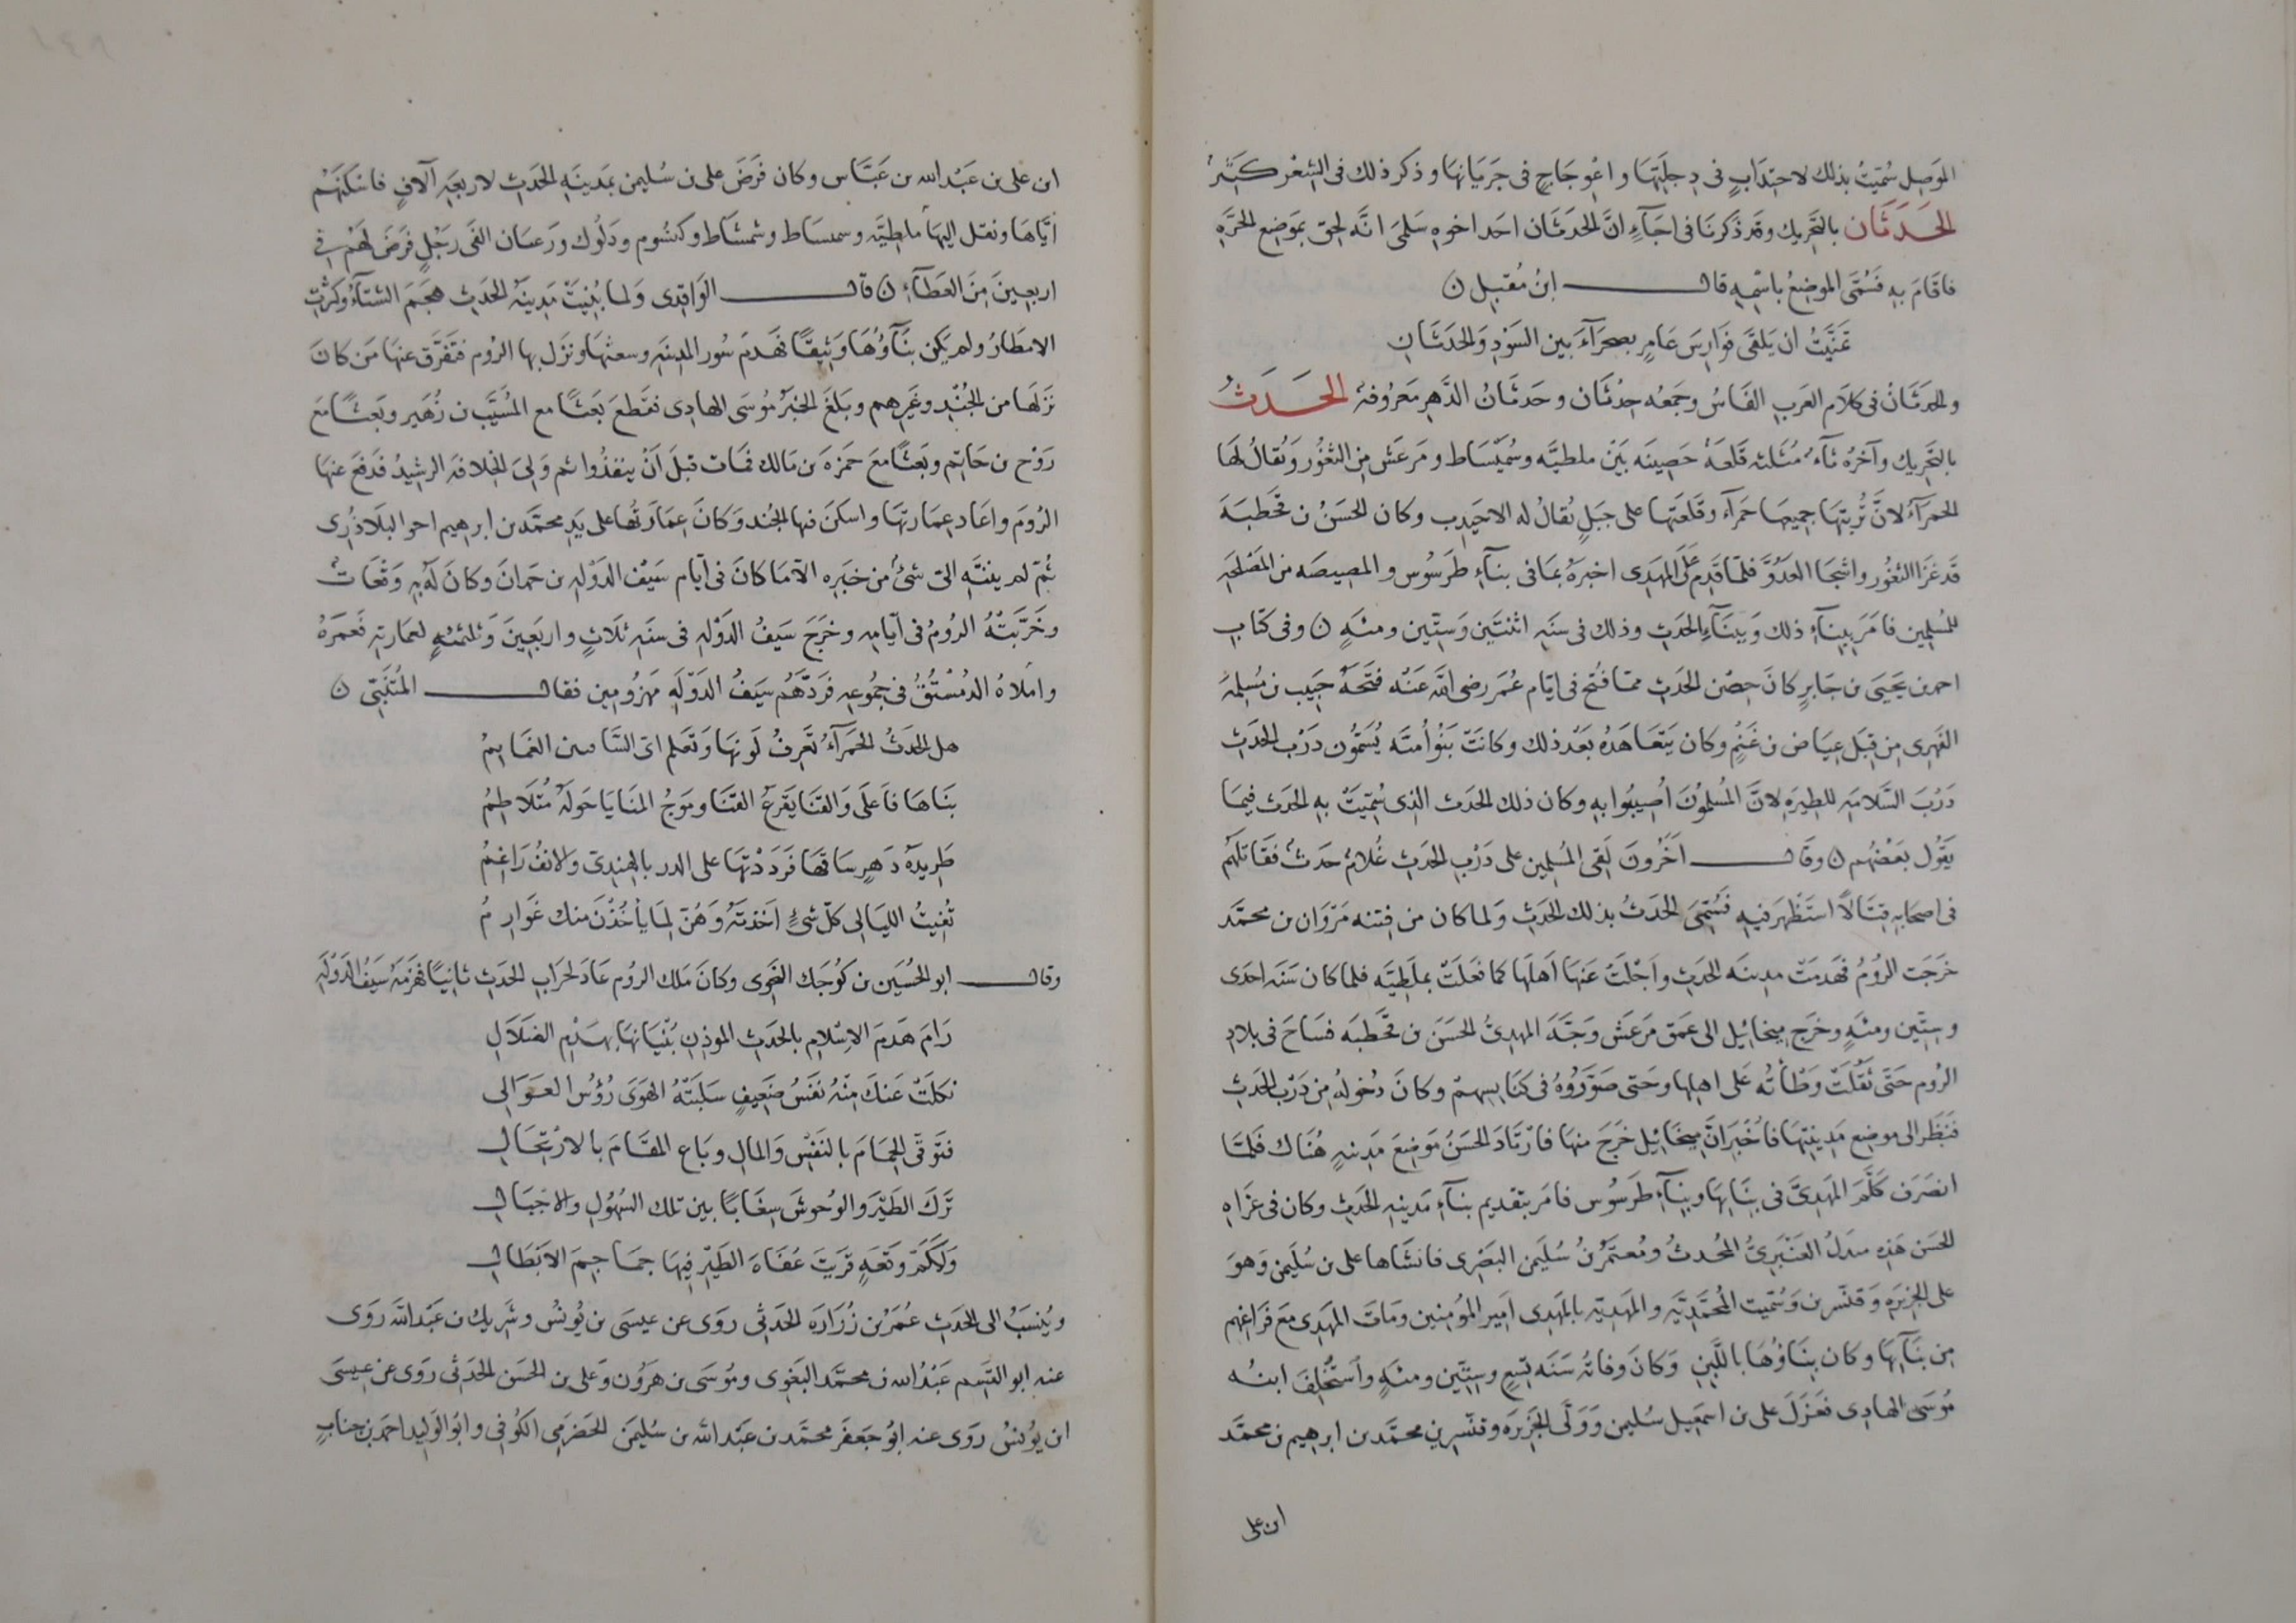 الموَصِل سُمّيتْ بذلك لاحتِدَابٍ فى دِجلَتِهَا واعْوجَاجٍ فى جَرَيَانِهَا وذكر ذلك فى الشِعْر كثيرٌ
الحَدَثَان بالتحَرِيك وقد ذكَرنَا فى اجَآءٍ انّ الحَدَثَان احَد اخوه سَلمىَ انّه لحِق بموَضِع الحَرَّهِ
فاقَامَ بهِ فَسُمّى الموضِعُ باسْمِهِ قال ابنُ مُقبِل ن
تَمنّيَتُ ان يَلقَى فَوَارِسَ عَامِرٍ بصحَرَآءَ بين السَوْدِ وَالحَدَثَانِ
والحِدثَانُ فى كلاَم العَربِ الفَاسُ وجَمْعُه حِدْثَان وحَدثَانُ الدَّهر مَعرُوفهٌ الحَدَثُ
بالتَحرِيك وآخرُه ثآءٌ مُثلثه قَلعَهٌ حَصِينَه بَيْن ملطيَّه وسُمَيْسَاط ومَرعَش مِن الثغُور وَيُقالُ لهَا
الحمرَآءُ لانَّ تُرْبتَهَا جميعهَا حَمرَآء وقَلعَتهَا على جَبَلٍ يُقالُ له الاحَيْدِب وكان الحَسَنُ بن قحَطبَهَ
قَد غَزَا الثغُور واشجَا العَدُوَّ فلمّا قَدِمَ عَلَى المهَدِى اخبرَهُ بمَا فى بنآءِ طَرسُوس والمصِيصَه من المصَلحَهِ
للمُسلِمين فامَرَ ببِنَآءِ ذلك وَببِنَآءِ الحَدَثِ وذلك فى سَنَهِ اثْنتَين وَستّين ومئهٍ ن وفى كتابِ
احمد بن يَحيَى بن جَابِرٍ كانَ حِصْن الحَدَثِ ممّا فُتح فى ايّام عُمَر رضى اللّه عَنْه فتَحَهُ حَبِيب بن مُسلِمهَ
الفِهرِى مِن قِبَل عِيَاض بن غَنْمٍ وكان يَتَعَاهَدُه بَعْد ذلك وكانَتْ بَنُو اُميَّه يُسَمُّون دَرْب الحَدَثِ
دَرْبَ السَّلامَهِ للطِيرَهِ لانَّ المُسلِمُونَ اُصِيبُوا بهِ وكان ذلك الحَدَث الذِى سُمّيَتْ بهِ الحَدَث فِيمَا
يَقُول بَعْضُهم ن وقال آخرُونَ لَقِى المُسلِمين على دَرْبِ الحَدَثِ غُلامٌ حَدَثٌ فقَاتلهُم
فى اصحَابهِ قِتَالاً استَظْهَرَ فيهِ فَسُمّىَ الحَدَثُ بذلك الحَدَثِ ولما كان من فِتنه مَرْوَان بن محمّد
خَرَجَت الرُومُ فهَدمَتْ مدِينَه الحَدَثِ واَجْلَتْ عَنْهَا اَهلَهَا كما فَعَلَتْ بملَطِيَّه فلمّا كان سَنَه احدَى
وستّين ومئهٍ وخَرج مِيخائِيل الى عَمق مَرعَش وَجَّهَ المهدِىُّ الحَسَن بن قحَّطبَه فسَاحَ فى بلادِ
الرُوم حَتّى ثَقُلَتْ وَطْأتُه عَلى اهلِها وحَتى صَوَّرُوهُ فى كنَايسِهمْ وكانَ دُخولُهُ مِن دَرْب الحَدَثِ
فنَظَر الى موضِع مَدِينتِهَا فاُخْبَر انَّ مِيخَائِيل خَرَجَ منها فارْتَادَ الحَسَنُ مَوضِعَ مَدِينهٍ هُنَاك فَلمّا
انصَرَف كَلّمَ المهَدِىَّ فى بِنَايِهَا وبنآءِ طَرسُوس فامَر بتقدِيم بنآءِ مَدِينهِ الحَدَثِ وكان فى غَزَاهِ
الحسَن هَذِه مندَلُ العَنْبَرِىُّ المُحدِثُ ومُعتَمِرُ بنُ سُلَيمَن البَصْرِى فانشَاها على بن سُليَمن وَهوَ
على الجزيرَهِ وقنّسرين وَسُمّيت المُحمّدِيَّه والمهَديّه بالمهَدِى امَير المؤمِنين ومَات المهَدِى مَع فَراغِهم
مِن بنَآيِهَا وكان بنَاؤُهَا باللَّبِنِ وَكانَ وفاتُه سَنَه تِسعٍ وستّين ومئهٍ واُسْتُخلِفَ ابنُه
مُوسَى الهادِى فعَزَلَ على بن اسمَعِيل سُليمن وَوَلّى الجَزِيرَه وقنّسرِين محمّد بن ابرهِيم بن محمّد
ابن على
ابن على بن عَبْدالله بن عَبَّاس وكان فَرَضَ على بن سُليمن بمَدينَهِ الحَدَثِ لاربعَهِ آلافٍ فاسْكَنَهُمْ
ايّاهَا ونقَل اليهَا ملطِيّه وسمسَاط وشمشَاط وكيسُوم ودَلُوك ورَعبَان الفَى رَجُلٍ فرَضَ لَهُمْ فى
اربعِينَ مِنَ العَطآءِ ن قال الوَاقِدِى وَلما بُنِيتْ مَدِينهُ الحَدَثِ هَجَمَ الشتآءُ وكثُرَتِ
الامطَارُ ولم يَكن بنَآوُهَا وَثِيقًا فهَدمَ سُور المدِينَهِ وسعثهَا ونزَل بها الرُوم فتَفرَّق عنهَا مَن كانَ
نزَلهَا من الجُنْدِ وغَيرهِم وبَلغَ الخبَرُ مُوسَى الهادِى فقَطعَ بَعْثًا مع المُسَيَّب بن زُهَير وبَعثًا مَعَ
رَوْح بن حَاتِم وبَعْثًا مَعَ حَمزَه بن مَالك فمَات قبلَ اَنْ ينفذُوا ثم وَلِىَ الخِلافهَ الرشِيدُ فدَفعَ عنهَا
الرُومَ واعَاد عِمَارتهَا واسكَنَ فيها الجُند وَكانَ عِمَارتُها على يَدِ محمّد بن ابرهِيم احر البلَاذُرِى
ثمّ لم ينتَهِ الىّ شئٌ من خَبَرِه الاّ مَا كانَ فى ايّام سَيْف الدَوْلهِ بن حَمدانَ وكانَ لَه بهِ وَقعَاتٌ
وخَرَّبَتْهُ الرُومُ فى ايّامِه وخرَجَ سَيفُ الدَوْلهِ فى سنَه ثلَاثٍ واربَعِينَ وَثلثمئهٍ لعمَارتهِ فعَمَرَهُ
واملَاهُ الدُمُسْتُقُ فى جُمُوعهِ فرَدَّهُم سَيفُ الدَوْلَهِ مَهزُومِين فقال المُتَنَبّى ن
هلِ الحَدَثُ الحَمرَآءُ تَعرِفُ لَونهَا وَتعَلم اىّ السَّاقيين الغمَايمُ
بنَاهَا فاَعلَى وَالقنَا يقَرعُ القنَا ومَوجُ المنَايَا حَولَهُ مُتلَاطِمُ
طرِيدَهُ دَهرٍ سَاقهَا فرَدَدْتَهَا على الدر بالهندِىّ والانفُ رَاغِمُ
تُفِيتُ الليَالِى كلّ شئٍ اَخذتَهُ وَهُنّ لِمَا يأخُذْنَ منك غوَارِمُ
وقال ابو الحُسَين بن كَوُجَك النحَوِى وكانَ مَلك الرُوم عَادَ لخرَابِ الحَدَثِ ثانيًا فهَزَمَهُ سَيفُ الدَوْلَهِ
رَامَ هَدمَ الاسْلَامِ بالحَدثِ الموذِنِ بُنْيَانهَا بهَدْم الضَلَالِ
نكلَتْ عَنكَ مِنْهُ نفَسُ ضَعِيفٍ سَلبَتْهُ الهَوَى رُؤُسُ العَوَالِى
فتَوقَّى الحِمَامَ بالنفسْ وَالمالِ وبَاع المقَامَ بالارْتحَالِ
تَركَ الطَيْرَ والوُحوشَ سِغَابًا بين تلك السُهُولِ والاجْبَالِ
وَلكَمْ وَقعَهٍ قرَيتَ عُفَاهَ الطَيْرِ فِيهَا جمَاجِمَ الابَطَالِ
ويُنسَبُ الى الحَدَثِ عُمَرُ بن زُرَارَه الحَدَثِى روَى عن عيسَى بن يُونُسْ وشَرِيك بن عَبْدالله روَى
عنه ابو القَسِم عَبْدُالله بن محمّد البَغوِى ومُوسَى بن هرُون وَعلى بن الحَسَن الحَدَثِى رَوى عن عِيسَى
ابن يُونسُ روَى عنه ابُو جَعفَر محمّد بن عَبْدالله بن سُليمَن الحَضرَمِى الكُوفِى وابُو الوَلِيد احمَد بن جنابٍ